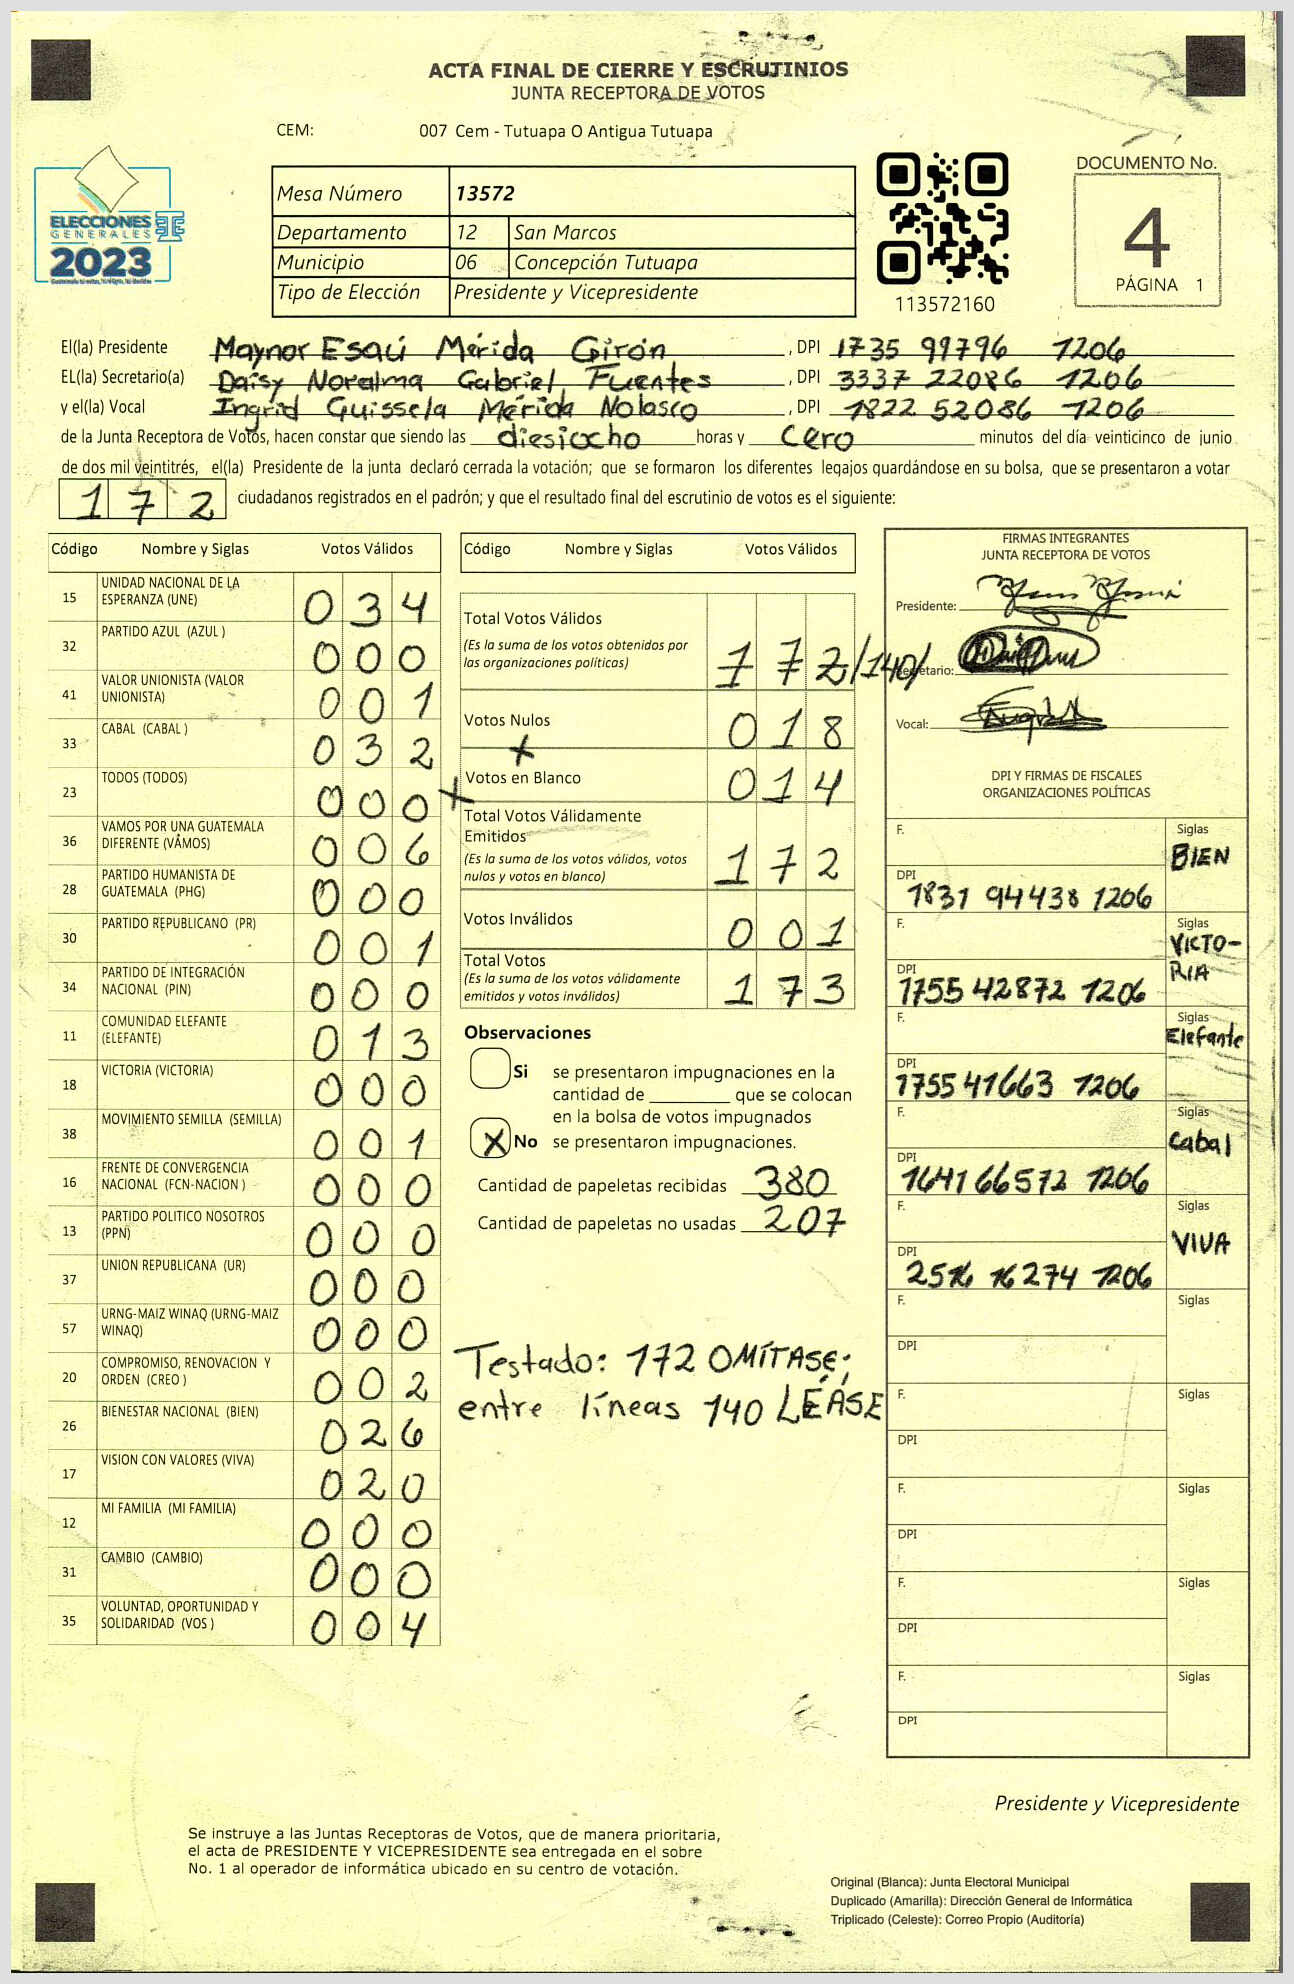 ACTA FINAL DE CIERRE Y ESCRUTINIOS
JUNTA RECEPTORA DE VOTOS
CEM: 007 Cem - Tutuapa O Antigua Tutuapa
ELECCIONES
GENERALES
2023
Mesa Número 13572
Departamento 12 San Marcos
Municipio 06 Concepción Tutuapa
Tipo de Elección Presidente y Vicepresidente
113572160
DOCUMENTO No.
4
PÁGINA 1
El(la) Presidente Maynor Esaú Mérida Girón, DPI 1735 99796 1206
EL(la) Secretario(a) Daisy Noralma Gabriel Fuentes, DPI 3337 22086 1206
y el(la) Vocal Ingrid Guissela Mérida Nolasco, DPI 1822 52086 1206
de la Junta Receptora de Votos, hacen constar que siendo las diesiocho horas y cero minutos del día veinticinco de junio
de dos mil veintitrés, el(la) Presidente de la junta declaró cerrada la votación; que se formaron los diferentes legajos guardándose en su bolsa, que se presentaron a votar
172 ciudadanos registrados en el padrón; y que el resultado final del escrutinio de votos es el siguiente:
Código Nombre y Siglas Votos Válidos
15 UNIDAD NACIONAL DE LA
ESPERANZA (UNE) 034
32 PARTIDO AZUL (AZUL ) 000
41 VALOR UNIONISTA (VALOR
UNIONISTA) 001
33 CABAL (CABAL ) 032
23 TODOS (TODOS) 000
36 VAMOS POR UNA GUATEMALA
DIFERENTE (VAMOS) 006
28 PARTIDO HUMANISTA DE
GUATEMALA (PHG) 000
30 PARTIDO REPUBLICANO (PR) 001
34 PARTIDO DE INTEGRACIÓN
NACIONAL (PIN) 000
11 COMUNIDAD ELEFANTE
(ELEFANTE) 013
18 VICTORIA (VICTORIA) 000
38 MOVIMIENTO SEMILLA (SEMILLA) 001
16 FRENTE DE CONVERGENCIA
NACIONAL (FCN-NACION ) 000
13 PARTIDO POLITICO NOSOTROS
(PPN) 000
37 UNION REPUBLICANA (UR) 000
57 URNG-MAIZ WINAQ (URNG-MAIZ
WINAQ) 000
20 COMPROMISO, RENOVACION Y
ORDEN (CREO ) 002
26 BIENESTAR NACIONAL (BIEN) 026
17 VISION CON VALORES (VIVA) 020
12 MI FAMILIA (MI FAMILIA) 000
31 CAMBIO (CAMBIO) 000
35 VOLUNTAD, OPORTUNIDAD Y
SOLIDARIDAD (VOS ) 004
Código Nombre y Siglas Votos Válidos
Total Votos Válidos
(Es la suma de los votos obtenidos por
las organizaciones políticas) 172/140/
Votos Nulos 018
Votos en Blanco 014
Total Votos Válidamente
Emitidos
(Es la suma de los votos válidos, votos
nulos y votos en blanco) 172
Votos Inválidos 001
Total Votos
(Es la suma de los votos válidamente
emitidos y votos inválidos) 173
Observaciones
Si se presentaron impugnaciones en la
cantidad de ________ que se colocan
en la bolsa de votos impugnados
X No se presentaron impugnaciones.
Cantidad de papeletas recibidas 380
Cantidad de papeletas no usadas 207
Testado: 172 OMÍTASE;
entre líneas 140 LÉASE
FIRMAS INTEGRANTES
JUNTA RECEPTORA DE VOTOS
Presidente:
Secretario:
Vocal:
DPI Y FIRMAS DE FISCALES
ORGANIZACIONES POLÍTICAS
F. Siglas
BIEN
DPI
1831 94438 1206
F. Siglas
VICTO-
RIA
DPI
1755 42872 1206
F. Siglas
Elefante
DPI
1755 41663 1206
F. Siglas
Cabal
DPI
1641 66572 1206
F. Siglas
VIVA
DPI
2516 16274 1206
F. Siglas
DPI
F. Siglas
DPI
F. Siglas
DPI
F. Siglas
DPI
F. Siglas
DPI
Presidente y Vicepresidente
Se instruye a las Juntas Receptoras de Votos, que de manera prioritaria,
el acta de PRESIDENTE Y VICEPRESIDENTE sea entregada en el sobre
No. 1 al operador de informática ubicado en su centro de votación.
Original (Blanca): Junta Electoral Municipal
Duplicado (Amarilla): Dirección General de Informática
Triplicado (Celeste): Correo Propio (Auditoría)